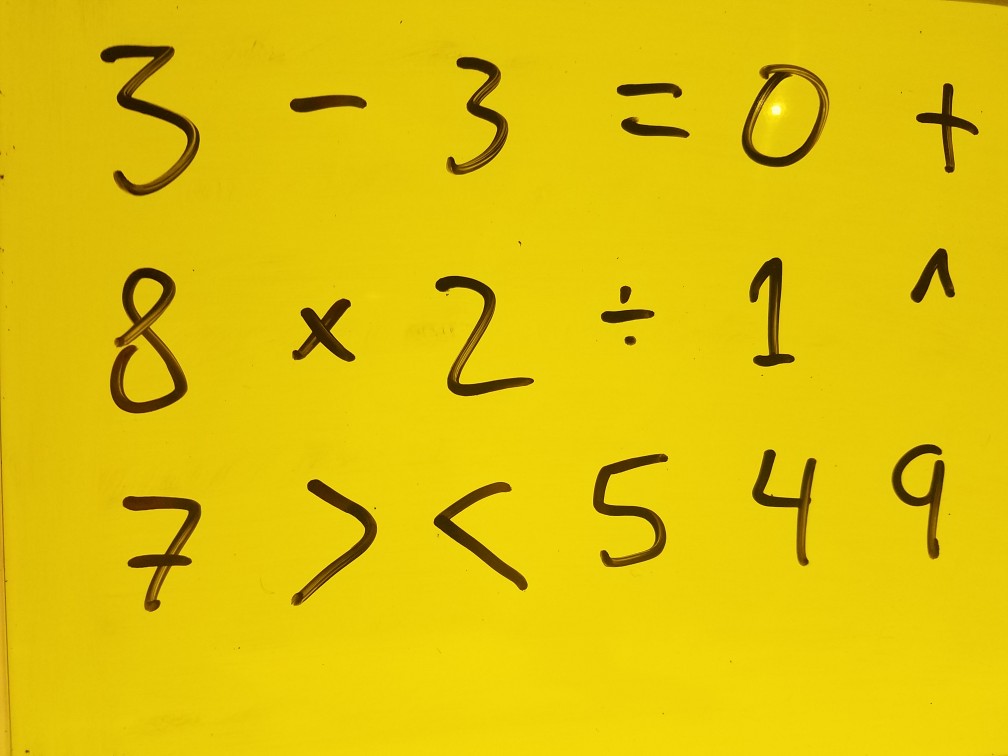 3 - 3 = 0 +
8 × 2 ÷ 1 ^
7 > < 5 4 9